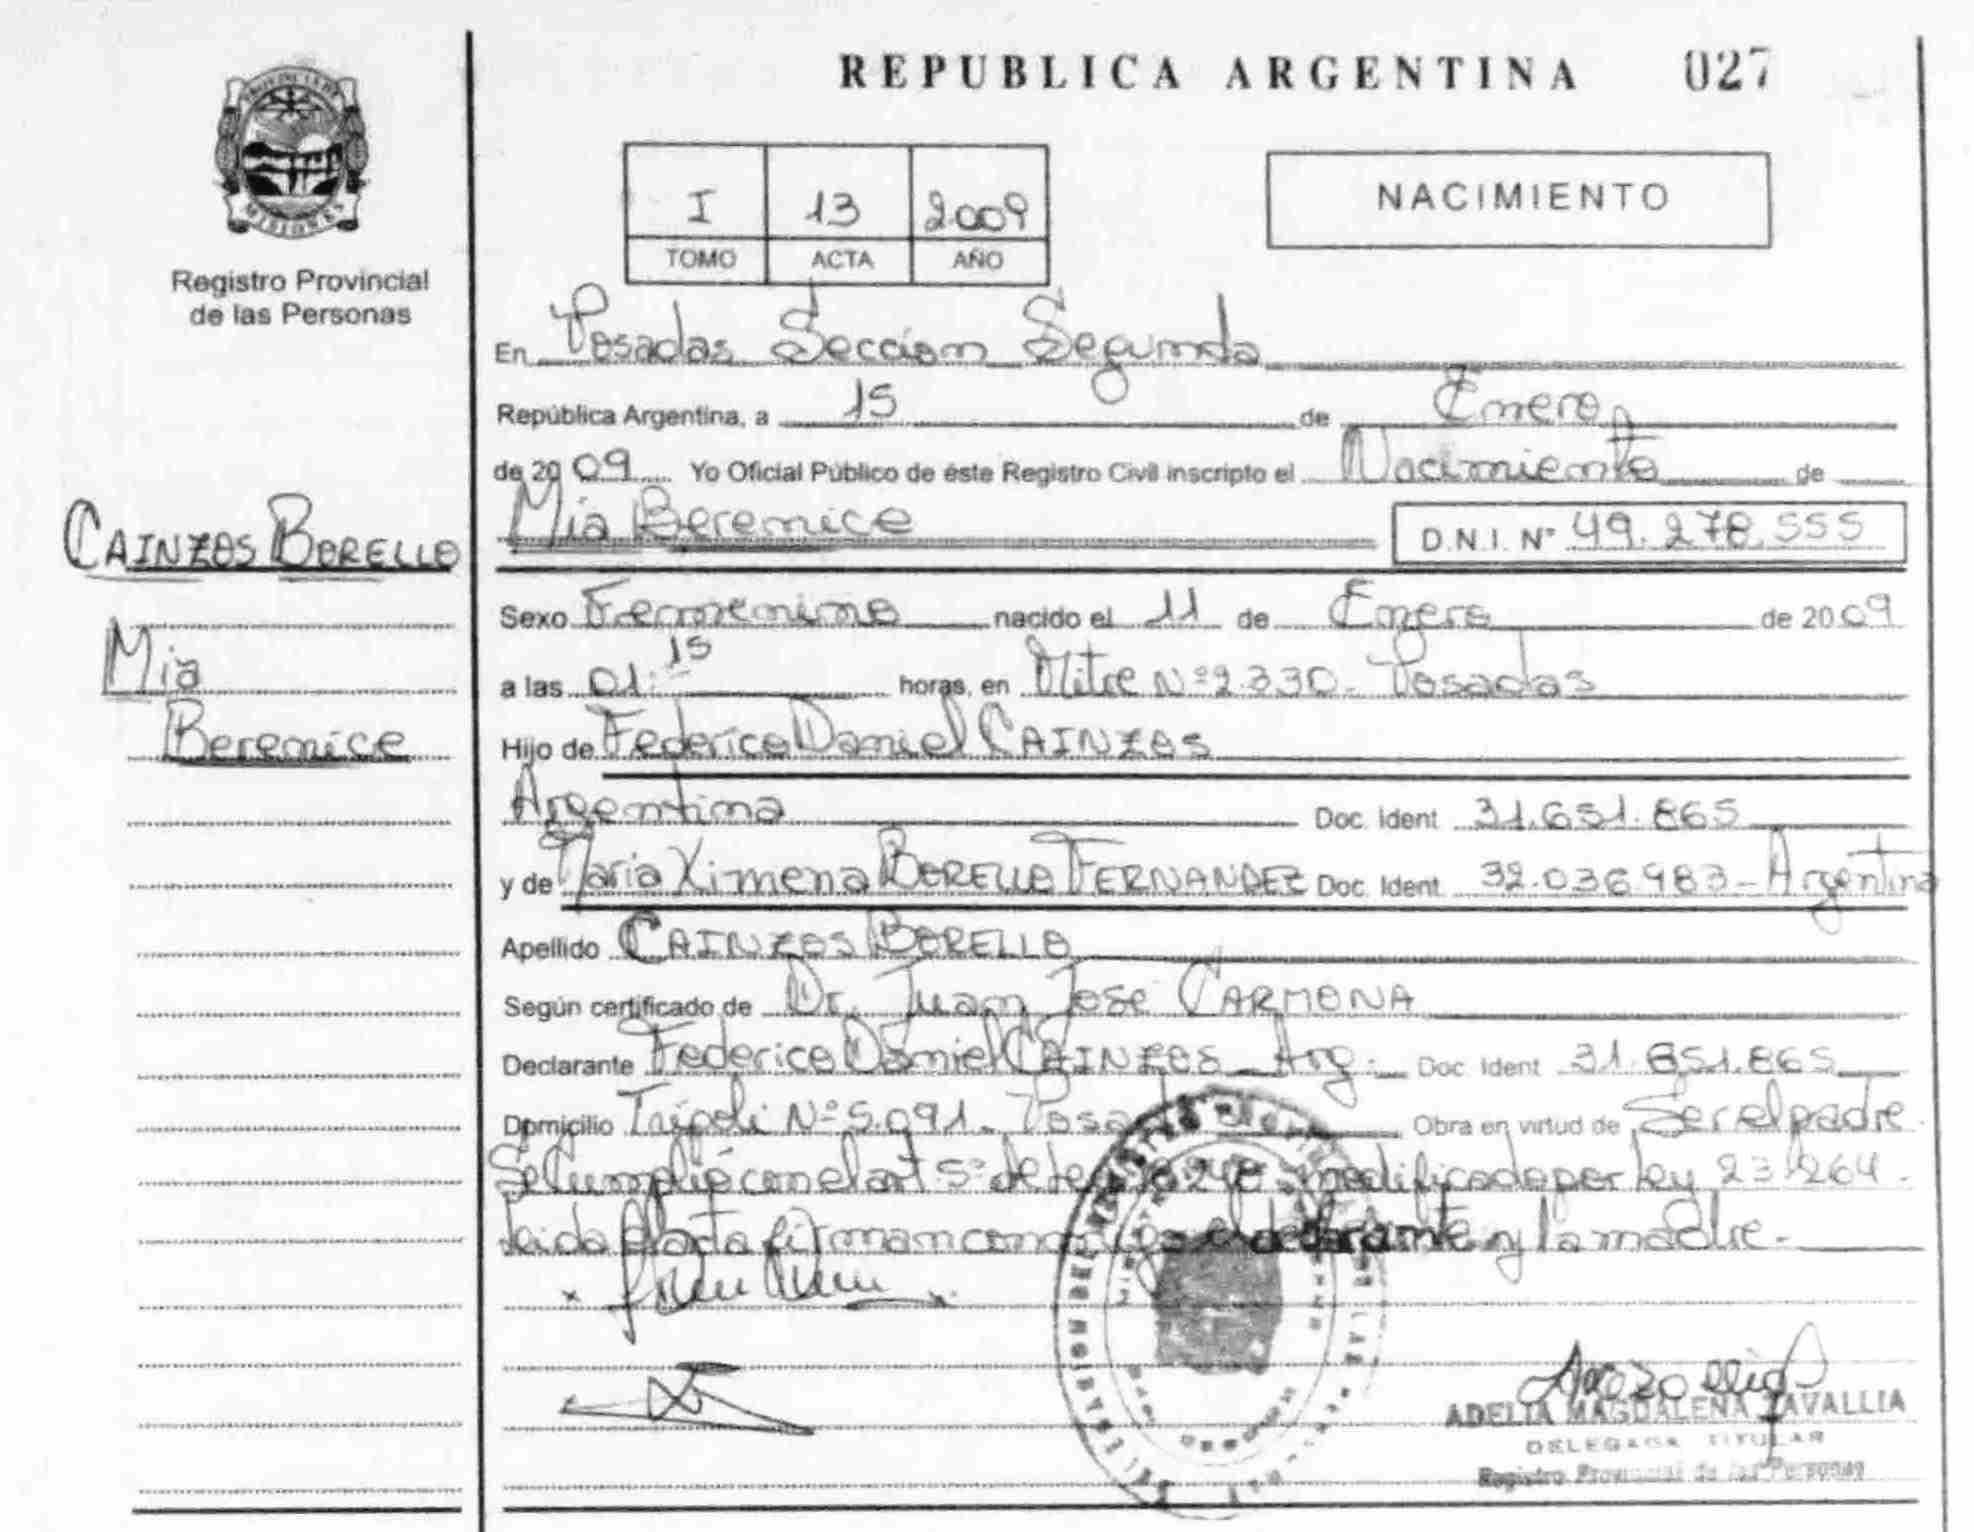 REPUBLICA ARGENTINA 027
PROVINCIA DE
MISIONES
Registro Provincial
de las Personas
I 13 2009
TOMO ACTA AÑO
NACIMIENTO
En Posadas Sección Segunda
República Argentina, a 15 de Enero
de 2009 Yo Oficial Público de éste Registro Civil inscripto el Nacimiento de
Mia Berenice D.N.I. N° 49.278.555
CAINZOS BORELLO
Mia
Berenice
Sexo Femenino nacido el 11 de Enero de 2009
a las 01:15 horas, en Mitre Nº 2.330 - Posadas
Hijo de Federico Daniel CAINZOS
Argentina Doc. Ident 31.651.865
y de Maria Ximena BORELLO FERNANDEZ Doc. Ident 32.036.983 - Argentina
Apellido CAINZOS BORELLO
Según certificado de Dr. Juan José CARMONA
Declarante Federico Daniel CAINZOS - Arg. Doc. Ident 31.651.865
Domicilio Trípoli Nº 5.091 - Posadas Obra en virtud de Ser el padre
Se Cumplió con el art 5º de modificado por ley 23.264 -
leida el acta firman conmigo el declarante y la madre -
ADELIA MAGDALENA ZAVALLIA
DELEGADA TITULAR
Registro Provincial de las Personas